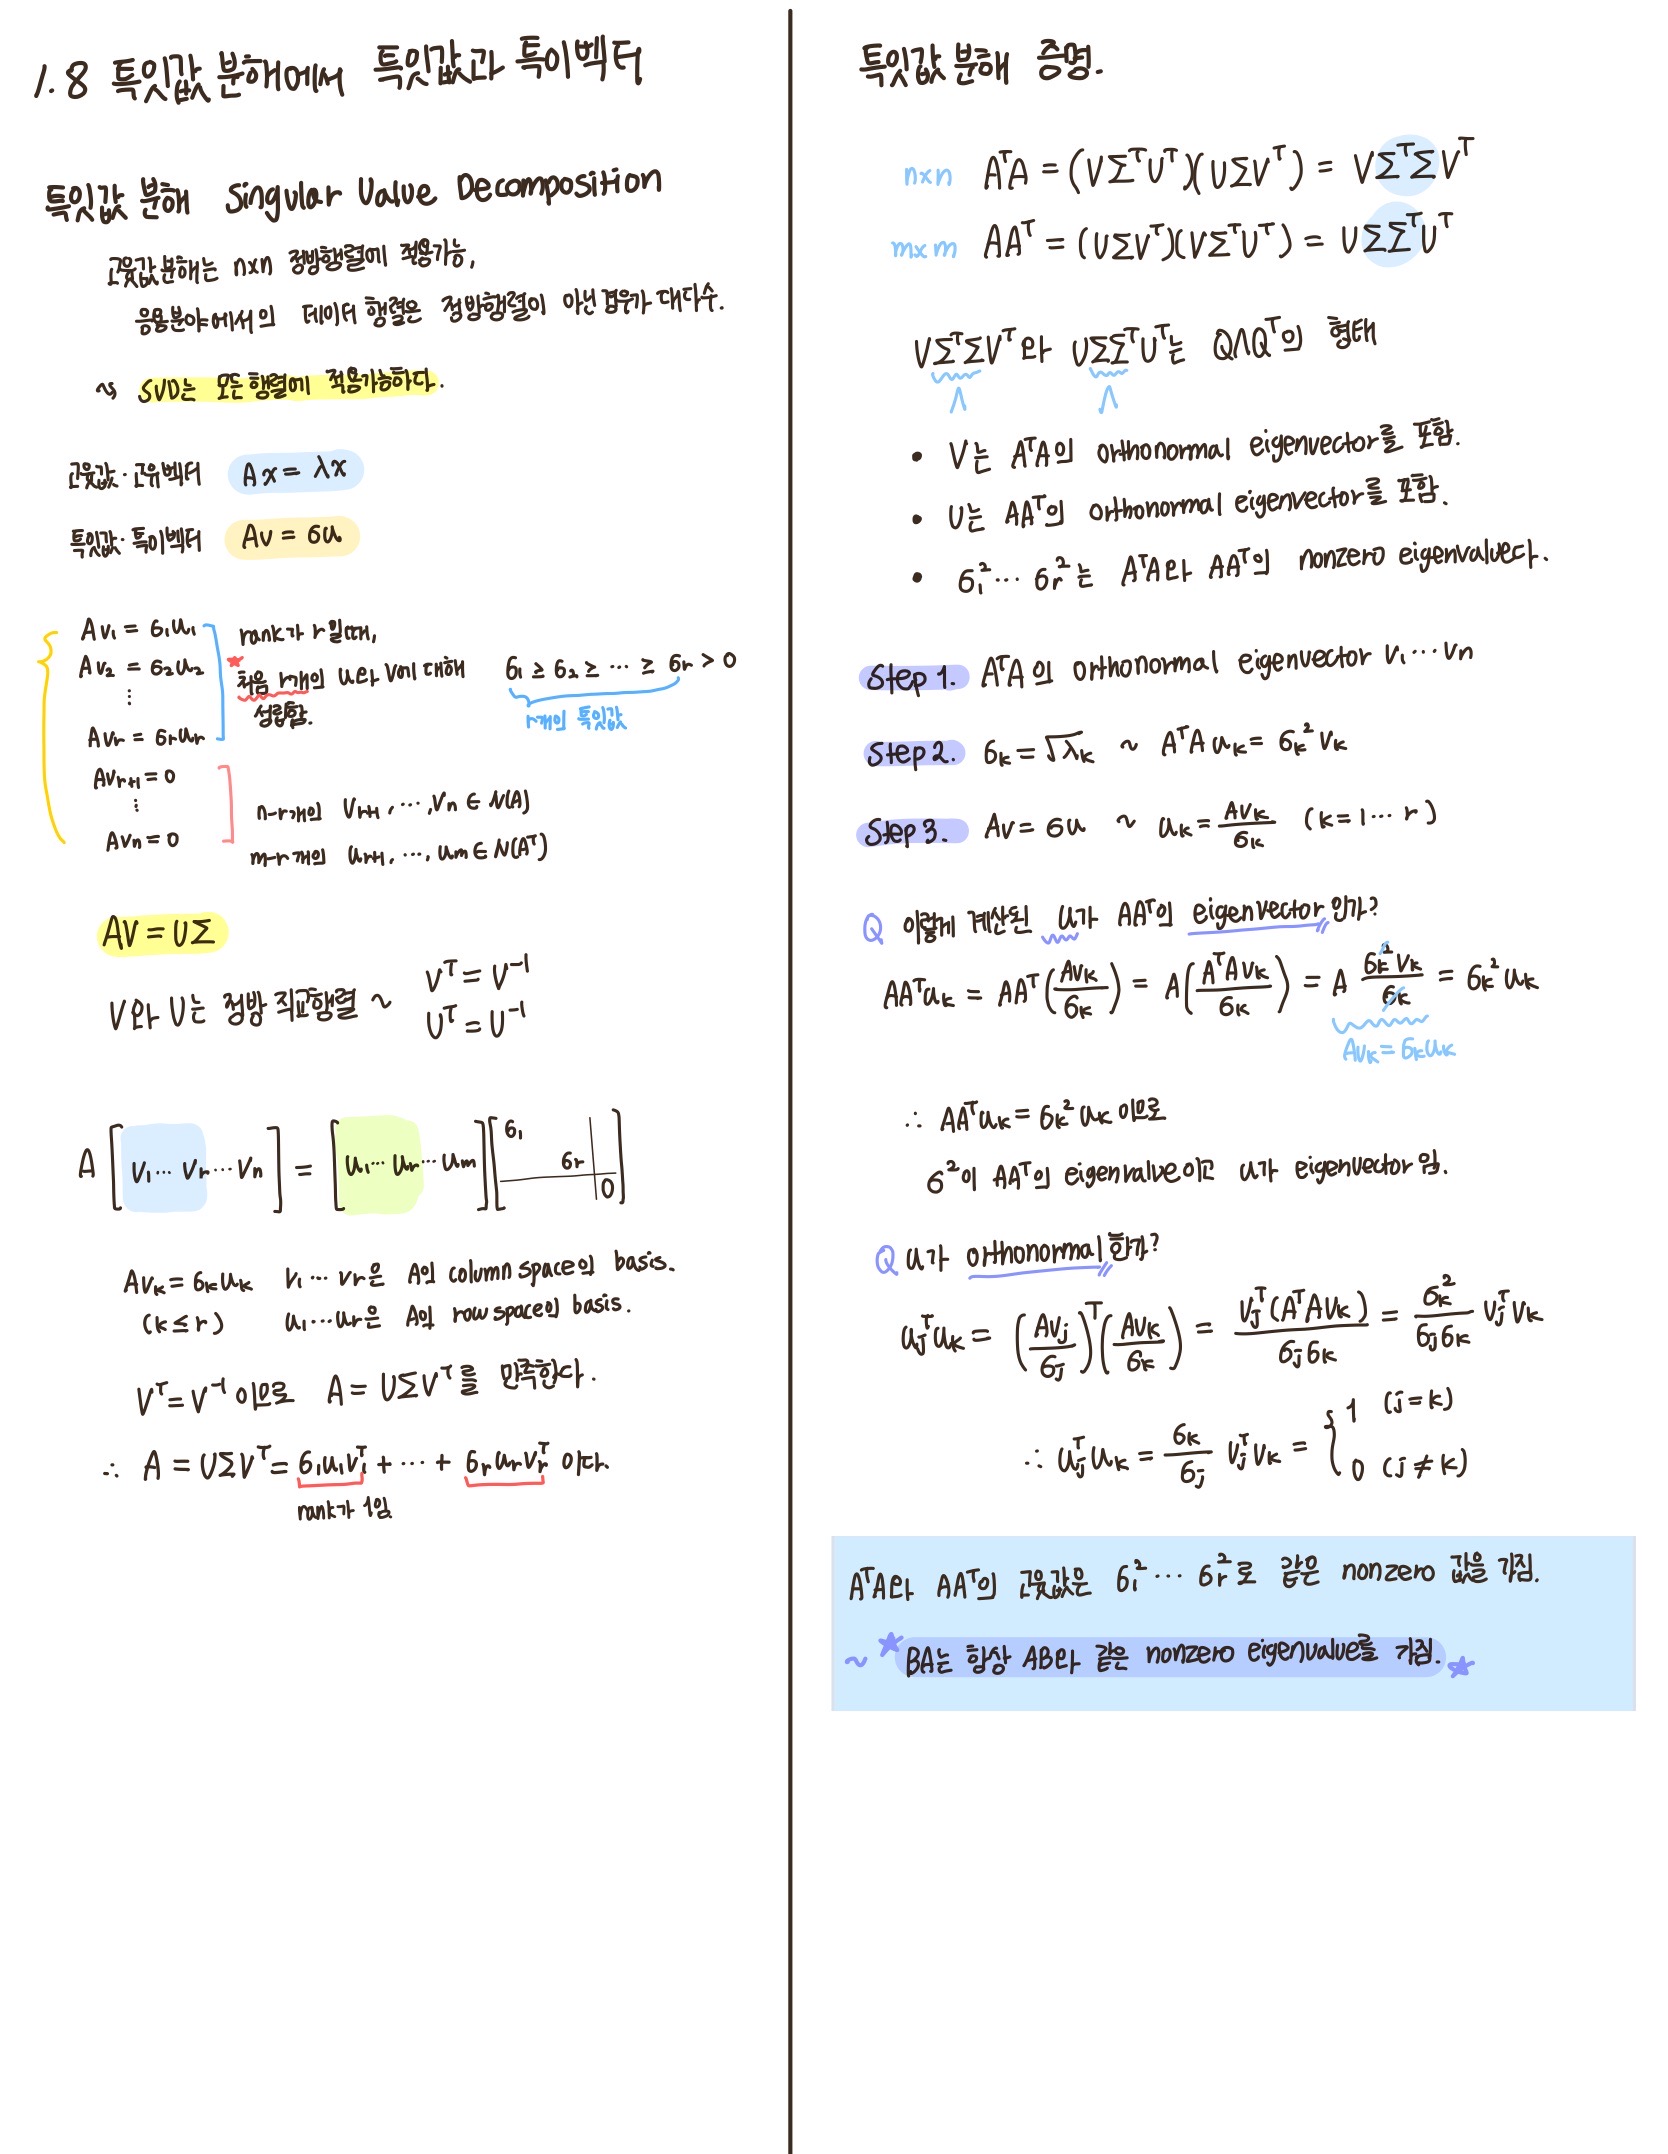 1.8 특잇값 분해에서 특잇값과 특이벡터
특잇값 분해 Singular Value Decomposition
고윳값 분해는 n×n 정방행렬에 적용가능,
응용분야에서의 데이터 행렬은 정방행렬이 아닌 경우가 대다수.
~> SVD는 모든 행렬에 적용가능하다.
고윳값·고유벡터 Ax = λx
특잇값·특이벡터 Av = σu
Av₁ = σ₁u₁
Av₂ = σ₂u₂
⋮
Avᵣ = σᵣuᵣ
Avᵣ₊₁ = 0
⋮
Avₙ = 0
rank가 r일때,
★ 처음 r개의 u와 v에 대해
성립함.
σ₁ ≥ σ₂ ≥ ⋯ ≥ σᵣ > 0
r개의 특잇값
n-r개의 vᵣ₊₁, ⋯, vₙ ∈ N(A)
m-r개의 uᵣ₊₁, ⋯, uₘ ∈ N(Aᵀ)
AV = UΣ
V와 U는 정방 직교행렬 ~ Vᵀ = V⁻¹
Uᵀ = U⁻¹
A [v₁⋯ vᵣ⋯ vₙ] = [u₁⋯ uᵣ⋯ uₘ] [σ₁ σᵣ 0]
Avₖ = σₖuₖ v₁ ⋯ vᵣ은 A의 column space의 basis.
(k ≤ r) u₁⋯uᵣ은 A의 row space의 basis.
Vᵀ = V⁻¹ 이므로 A = UΣVᵀ를 만족한다.
∴ A = UΣVᵀ = σ₁u₁v₁ᵀ + ⋯ + σᵣuᵣvᵣᵀ 이다.
rank가 1임.
특잇값 분해 증명.
n×n AᵀA = (VΣᵀUᵀ)(UΣVᵀ) = VΣᵀΣVᵀ
m×m AAᵀ = (UΣVᵀ)(VΣᵀUᵀ) = UΣΣᵀUᵀ
VΣᵀΣVᵀ와 UΣΣᵀUᵀ는 QΛQᵀ의 형태
Λ Λ
• V는 AᵀA의 orthonormal eigenvector를 포함.
• U는 AAᵀ의 orthonormal eigenvector를 포함.
• σ₁² ⋯ σᵣ²는 AᵀA와 AAᵀ의 nonzero eigenvalue다.
Step 1. AᵀA의 orthonormal eigenvector v₁⋯vₙ
Step 2. σₖ = √λₖ ~ AᵀAuₖ = σₖ²vₖ
Step 3. Av = σu ~ uₖ = Avₖ/σₖ (k=1⋯r)
Q 이렇게 계산된 u가 AAᵀ의 eigenvector인가?
AAᵀuₖ = AAᵀ(Avₖ/σₖ) = A(AᵀAvₖ/σₖ) = A σₖ²vₖ/σₖ = σₖ²uₖ
Avₖ = σₖuₖ
∴ AAᵀuₖ = σₖ²uₖ 이므로
σ²이 AAᵀ의 eigenvalue이고 u가 eigenvector임.
Q u가 orthonormal한가?
uⱼᵀuₖ = (Avⱼ/σⱼ)ᵀ(Avₖ/σₖ) = vⱼᵀ(AᵀAvₖ)/σⱼσₖ = σₖ²/σⱼσₖ vⱼᵀvₖ
∴ uⱼᵀuₖ = σₖ/σⱼ vⱼᵀvₖ = { 1 (j=k)
0 (j≠k)
AᵀA와 AAᵀ의 고윳값은 σ₁² ⋯ σᵣ²로 같은 nonzero 값을 가짐.
~ ★ BA는 항상 AB와 같은 nonzero eigenvalue를 가짐. ★